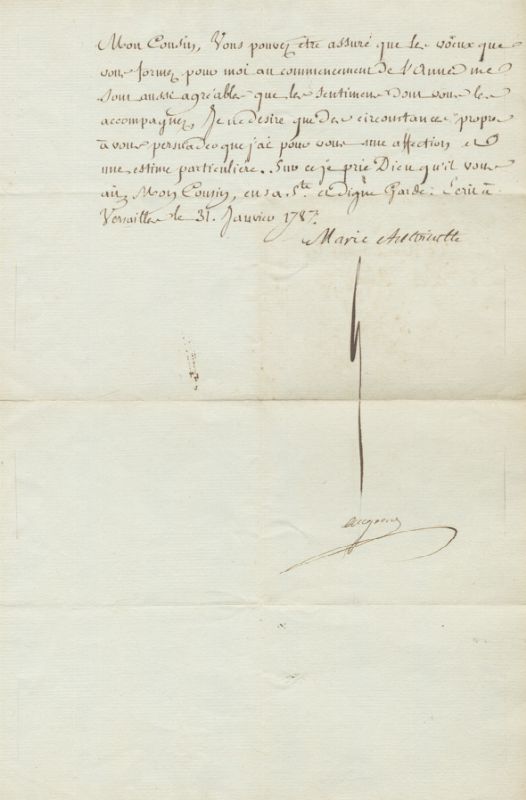 Mon Cousin, Vous pouvez etre assuré que les vœux que
vous formez pour moi au commencement de l'Année me
sont aussi agréables que les sentimens dont vous les
accompagnez, Je ne desire que des circonstances propres
à vous persuader que j'ai pour vous une affection et
une estime particuliere. Sur ce je prie Dieu qu'il vous
ait, Mon Cousin, en sa Ste et digne Garde: Ecrit à
Versailles le 31. Janvier 1787.
Marie Antoinette